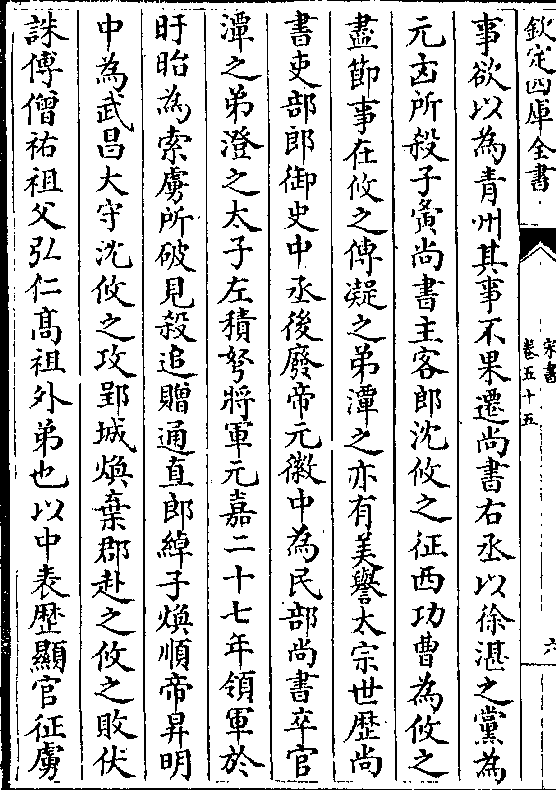 欽定四庫全書
宋書
卷五十五
六
事欲以為青州其事不果遷尚書右丞以徐湛之黨為
元凶所殺子寅尚書主客郎沈攸之征西功曹為攸之
盡節事在攸之傳凝之弟潭之亦有美譽太宗世歴尚
書吏部郎御史中丞後廢帝元徽中為民部尚書卒官
潭之弟澄之太子左積弩將軍元嘉二十七年領軍於
盱眙為索虜所破見殺追贈通直郎綽子煥順帝昇明
中為武昌太守沈攸之攻郢城煥棄郡赴之攸之敗伏
誅傅僧祐祖父弘仁高祖外弟也以中表歴顯官征虜